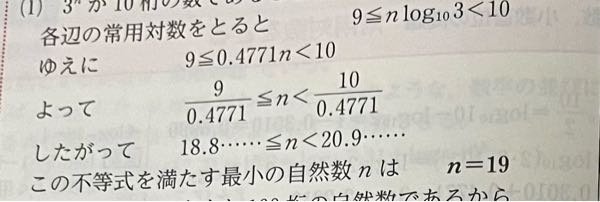 (1) 3ⁿ が 10 桁の数であ
各辺の常用対数をとると 9≦n log₁₀3<10
ゆえに 9≦0.4771n<10
よって 9/0.4771 ≦n< 10/0.4771
したがって 18.8……≦n<20.9……
この不等式を満たす最小の自然数 n は n=19
桁の自然数であるから